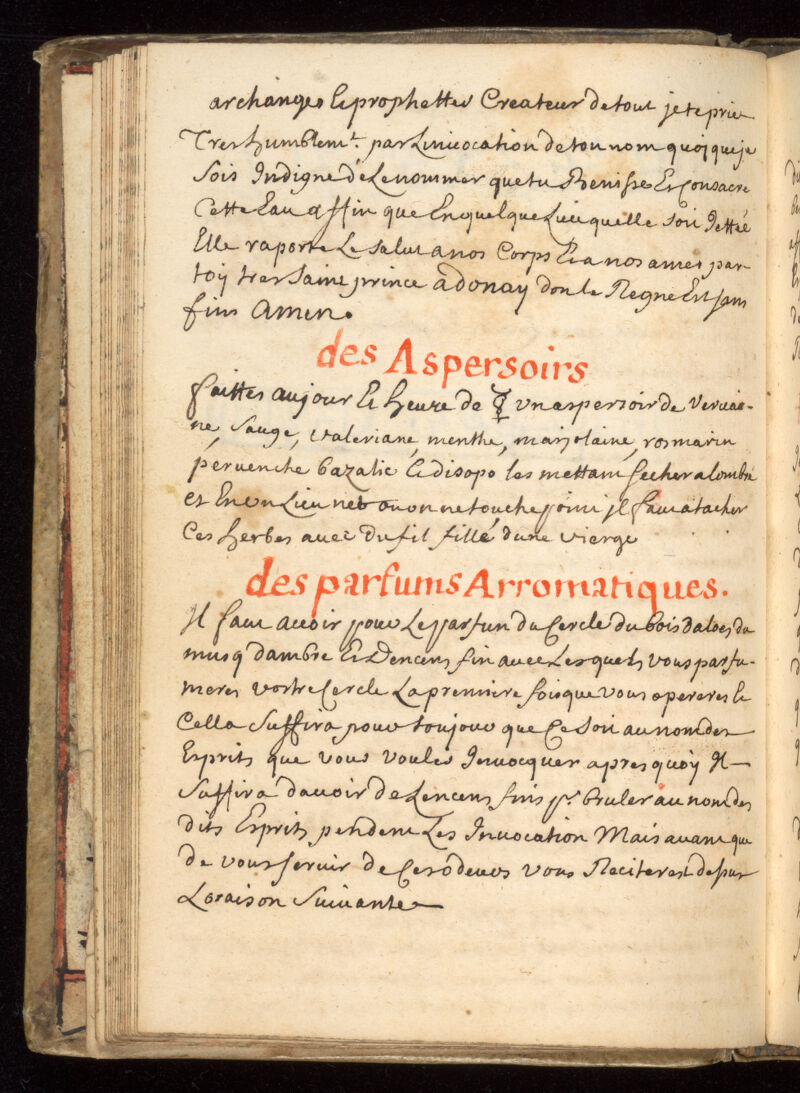 archanges & prophettes Createur de tout je te prie
Tres humblemt. par Linuocation de ton nom quoj que je
sois Indigne de Le nommer que tu Benisse Et Consacre
Cette Eau affin que En quelque Lieu quelle soit Jettée
Elle raporte Le salut a nos Corps & a nos ames par
toij tres saint prince adonay dont Le Regne Est sans
fin Amen.
des Aspersoirs
faittes au jour & heure de ☿ vn aspersoir de Veruai-
ne, sauge, valeriane, menthe, marjolaine, rosmarin
peruenche bazalic & disopo les mettant secher a lombre
et En vn Lieu net ou on ne touche point jl faut atacher
Ces herbes auec du fil fillé dune vierge
des parfums Arromatiques.
Il faut auoir pour Le parfun du Cercle du bois daloes du
musq dambre & Dencens fin auec Lesquels vous parfu-
meres vostre Cercle La premiere fois que vous opereres &
Cella suffira pour toujour que Ce soit au nom des
Esprits que vous voules Inuocquer apres quoij Il
suffira dauoir de Lencens fins pr. bruler au nom des
dits Esprits pendent Les Inuocation Mais auant que
de vous seruir de Ces odeurs vous Reciteres dessus
Loraison suiuante